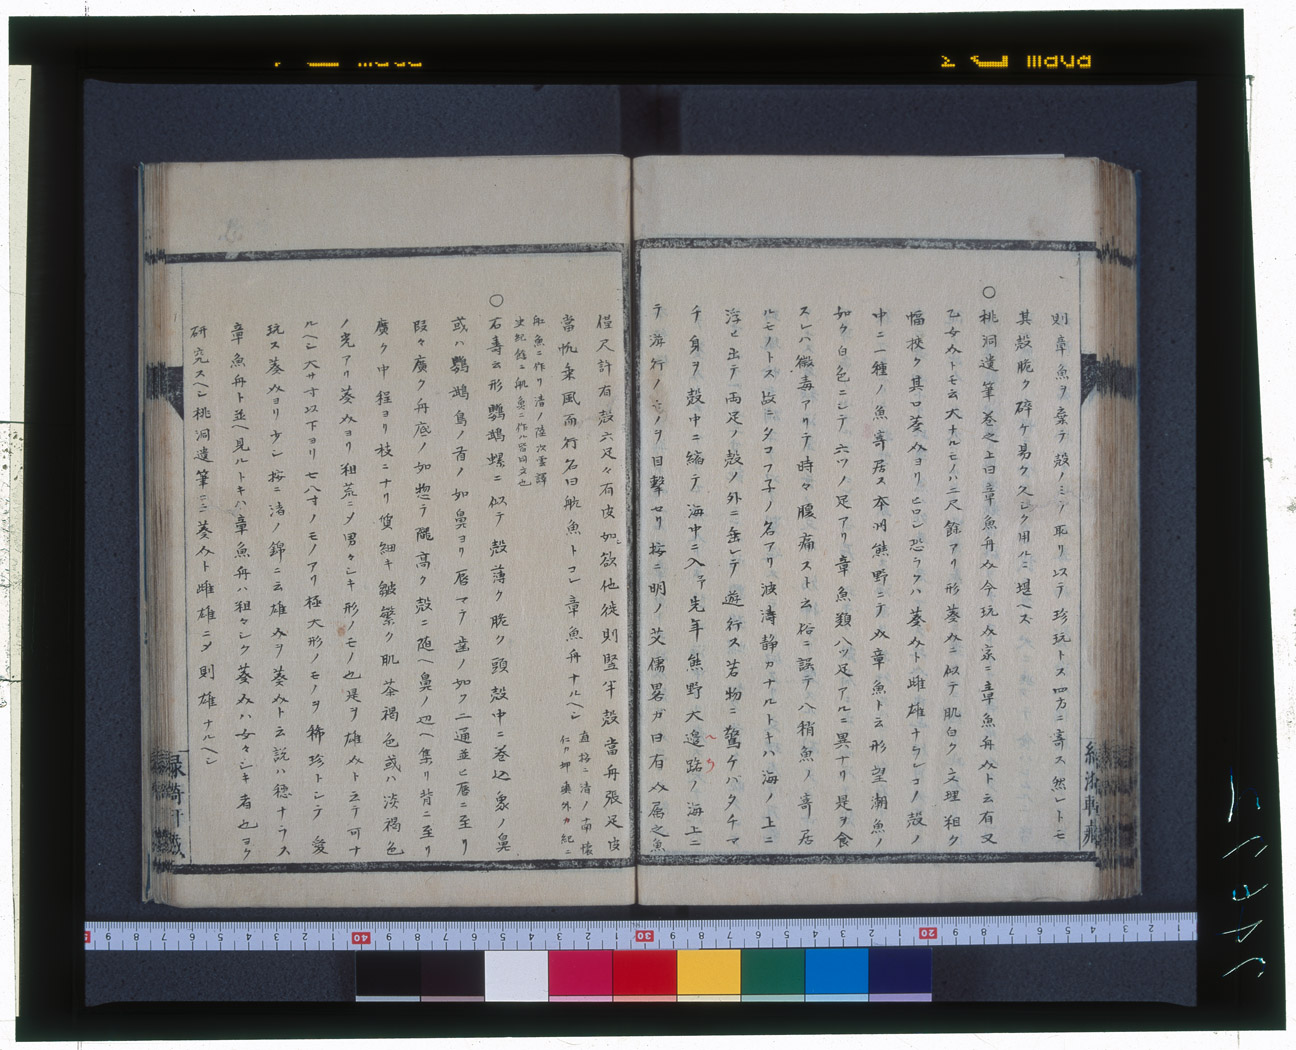 則章魚ヲ棄テ殻ノミヲ取リ以テ珍玩トス四方ニ寄ス然レトモ
其殻脆ク碎ケ易ク久シク用ルニ堪ヘス
○桃洞遺筆巻之上曰章魚舟介今玩介家ニ章魚舟介ト云有又
乙女介トモ云大ナルモノハ二尺餘アリ形葵介ニ似テ肌白ク文理粗ク
幅狹ク其口葵介ヨリヒロシ恐ラクハ葵介ト雌雄ナラン コノ殻ノ
中ニ一種ノ魚寄居ス本州熊野ニテ介章魚ト云形望潮魚ノ
如ク白色ニシテ六ツノ足アリ章魚類八ツ足アルニ異ナリ是ヲ食
スレハ微毒アリテ時々腹痛スト云俗ニ誤テ八稍魚ノ寄居
ルモノトス故ニタコフ子ノ名アリ波濤静カナルトキハ海ノ上ニ
浮ヒ出テ両足ノ殻ノ外ニ垂レテ遊行ス若物ニ驚ケバタチマ
チ身ヲ殻中ニ縮テ海中ニ入ル先年熊野大邉路ノ海上ニ
テ海行ノモノヲ目撃セリ按ニ明ノ艾儒畧ガ曰有介属之魚
僅尺計有殻六足々有皮如欲他徙則竪半殻當舟張足皮
當帆乗風而行名曰舩魚トコレ章魚舟ナルヘシ
直按ニ清ノ南懐
仁カ坤輿外カ紀ニ
舩魚ニ作リ清ノ陸次雲譯
史紀餘ニ舩魚ニ作ル皆同文也
○石壽云形鸚鵡螺ニ似テ殻薄ク脆ク頭殻中ニ巻込象ノ鼻
或ハ鸚鵡鳥ノ首ノ如鼻ヨリ唇マテ歯ノ如ク二通並ヒ唇ニ至リ
段々廣ク舟底ノ如惣テ隴高ク殻ニ随ヘ鼻ノ辺ヘ集リ背ニ至リ
廣ク中程ヨリ枝ニナリ質細キ皺繁ク肌茶褐色或ハ淡褐色
ノ光アリ葵介ヨリ粗荒ニメ男々シキ形ノモノ也是ヲ雄介ト云テ可ナ
ルヘシ大サ寸以下ヨリ七八寸ノモノアリ極大形ノモノヲ稀珍トシテ愛
玩ス葵介ヨリ少シ按ニ渚ノ錦ニ云雄介ヲ葵介ト云説ハ穏ナラス
章魚舟ト並ヘ見ルトキハ章魚舟ハ粗々シク葵介ハ女々シキ者也ヨク
研究スヘシ桃洞遺筆ニ云葵介ト雌雄ニメ則雄ナルヘシ